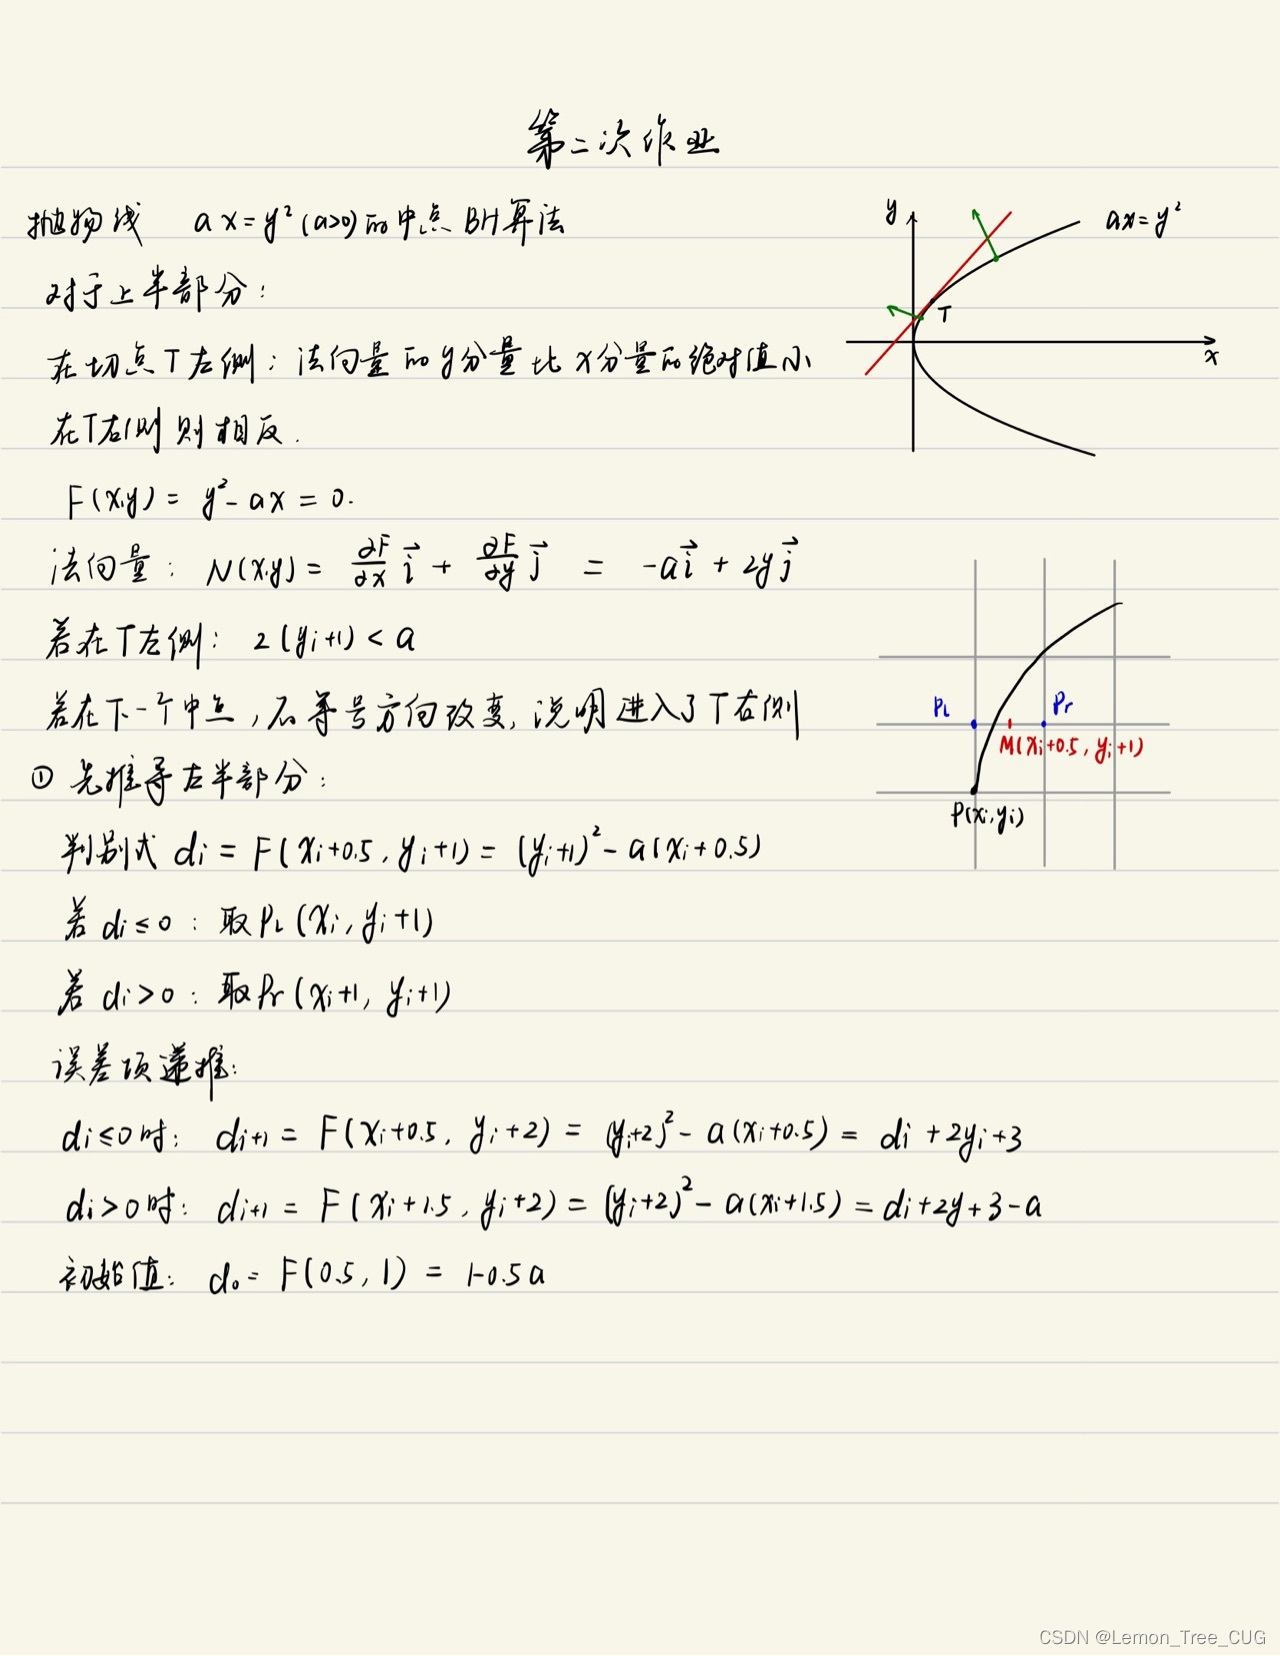 第二次作业
抛物线 ax=y²(a>0)的中点BH算法
对于上半部分:
在切点T左侧: 法向量的y分量比x分量的绝对值小
在T右侧则相反.
F(x,y) = y²-ax = 0.
法向量: N(x,y) = ∂F/∂x i⃗ + ∂F/∂y j⃗ = -ai⃗ + 2yj⃗
若在T左侧: 2(yi+1) < a
若在下一个中点,不等号方向改变,说明进入了T右侧
① 先推导左半部分:
判别式 di = F(xi+0.5, yi+1) = (yi+1)² - a(xi+0.5)
若 di≤0: 取PL(xi, yi+1)
若 di>0: 取Pr(xi+1, yi+1)
误差项递推:
di≤0时: di+1 = F(xi+0.5, yi+2) = (yi+2)² - a(xi+0.5) = di+2yi+3
di>0时: di+1 = F(xi+1.5, yi+2) = (yi+2)² - a(xi+1.5) = di+2y+3-a
初始值: d0 = F(0.5, 1) = 1-0.5a
y
ax=y²
T
x
PL
Pr
M(xi+0.5, yi+1)
P(xi,yi)
CSDN @Lemon_Tree_CUG